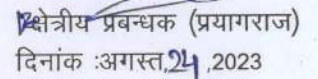 क्षेत्रीय प्रबन्धक (प्रयागराज)
दिनांक :अगस्त,24 ,2023